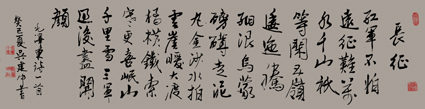 長征
紅軍不怕
遠征難萬
水千山只
等閑五嶺
逶迤騰
細浪烏蒙
磅礴走泥
丸金沙水拍
雲崖暖大渡
橋橫鐵索
寒更喜岷山
千里雪三軍
過後盡開
顏
毛澤東詩一首
癸巳夏